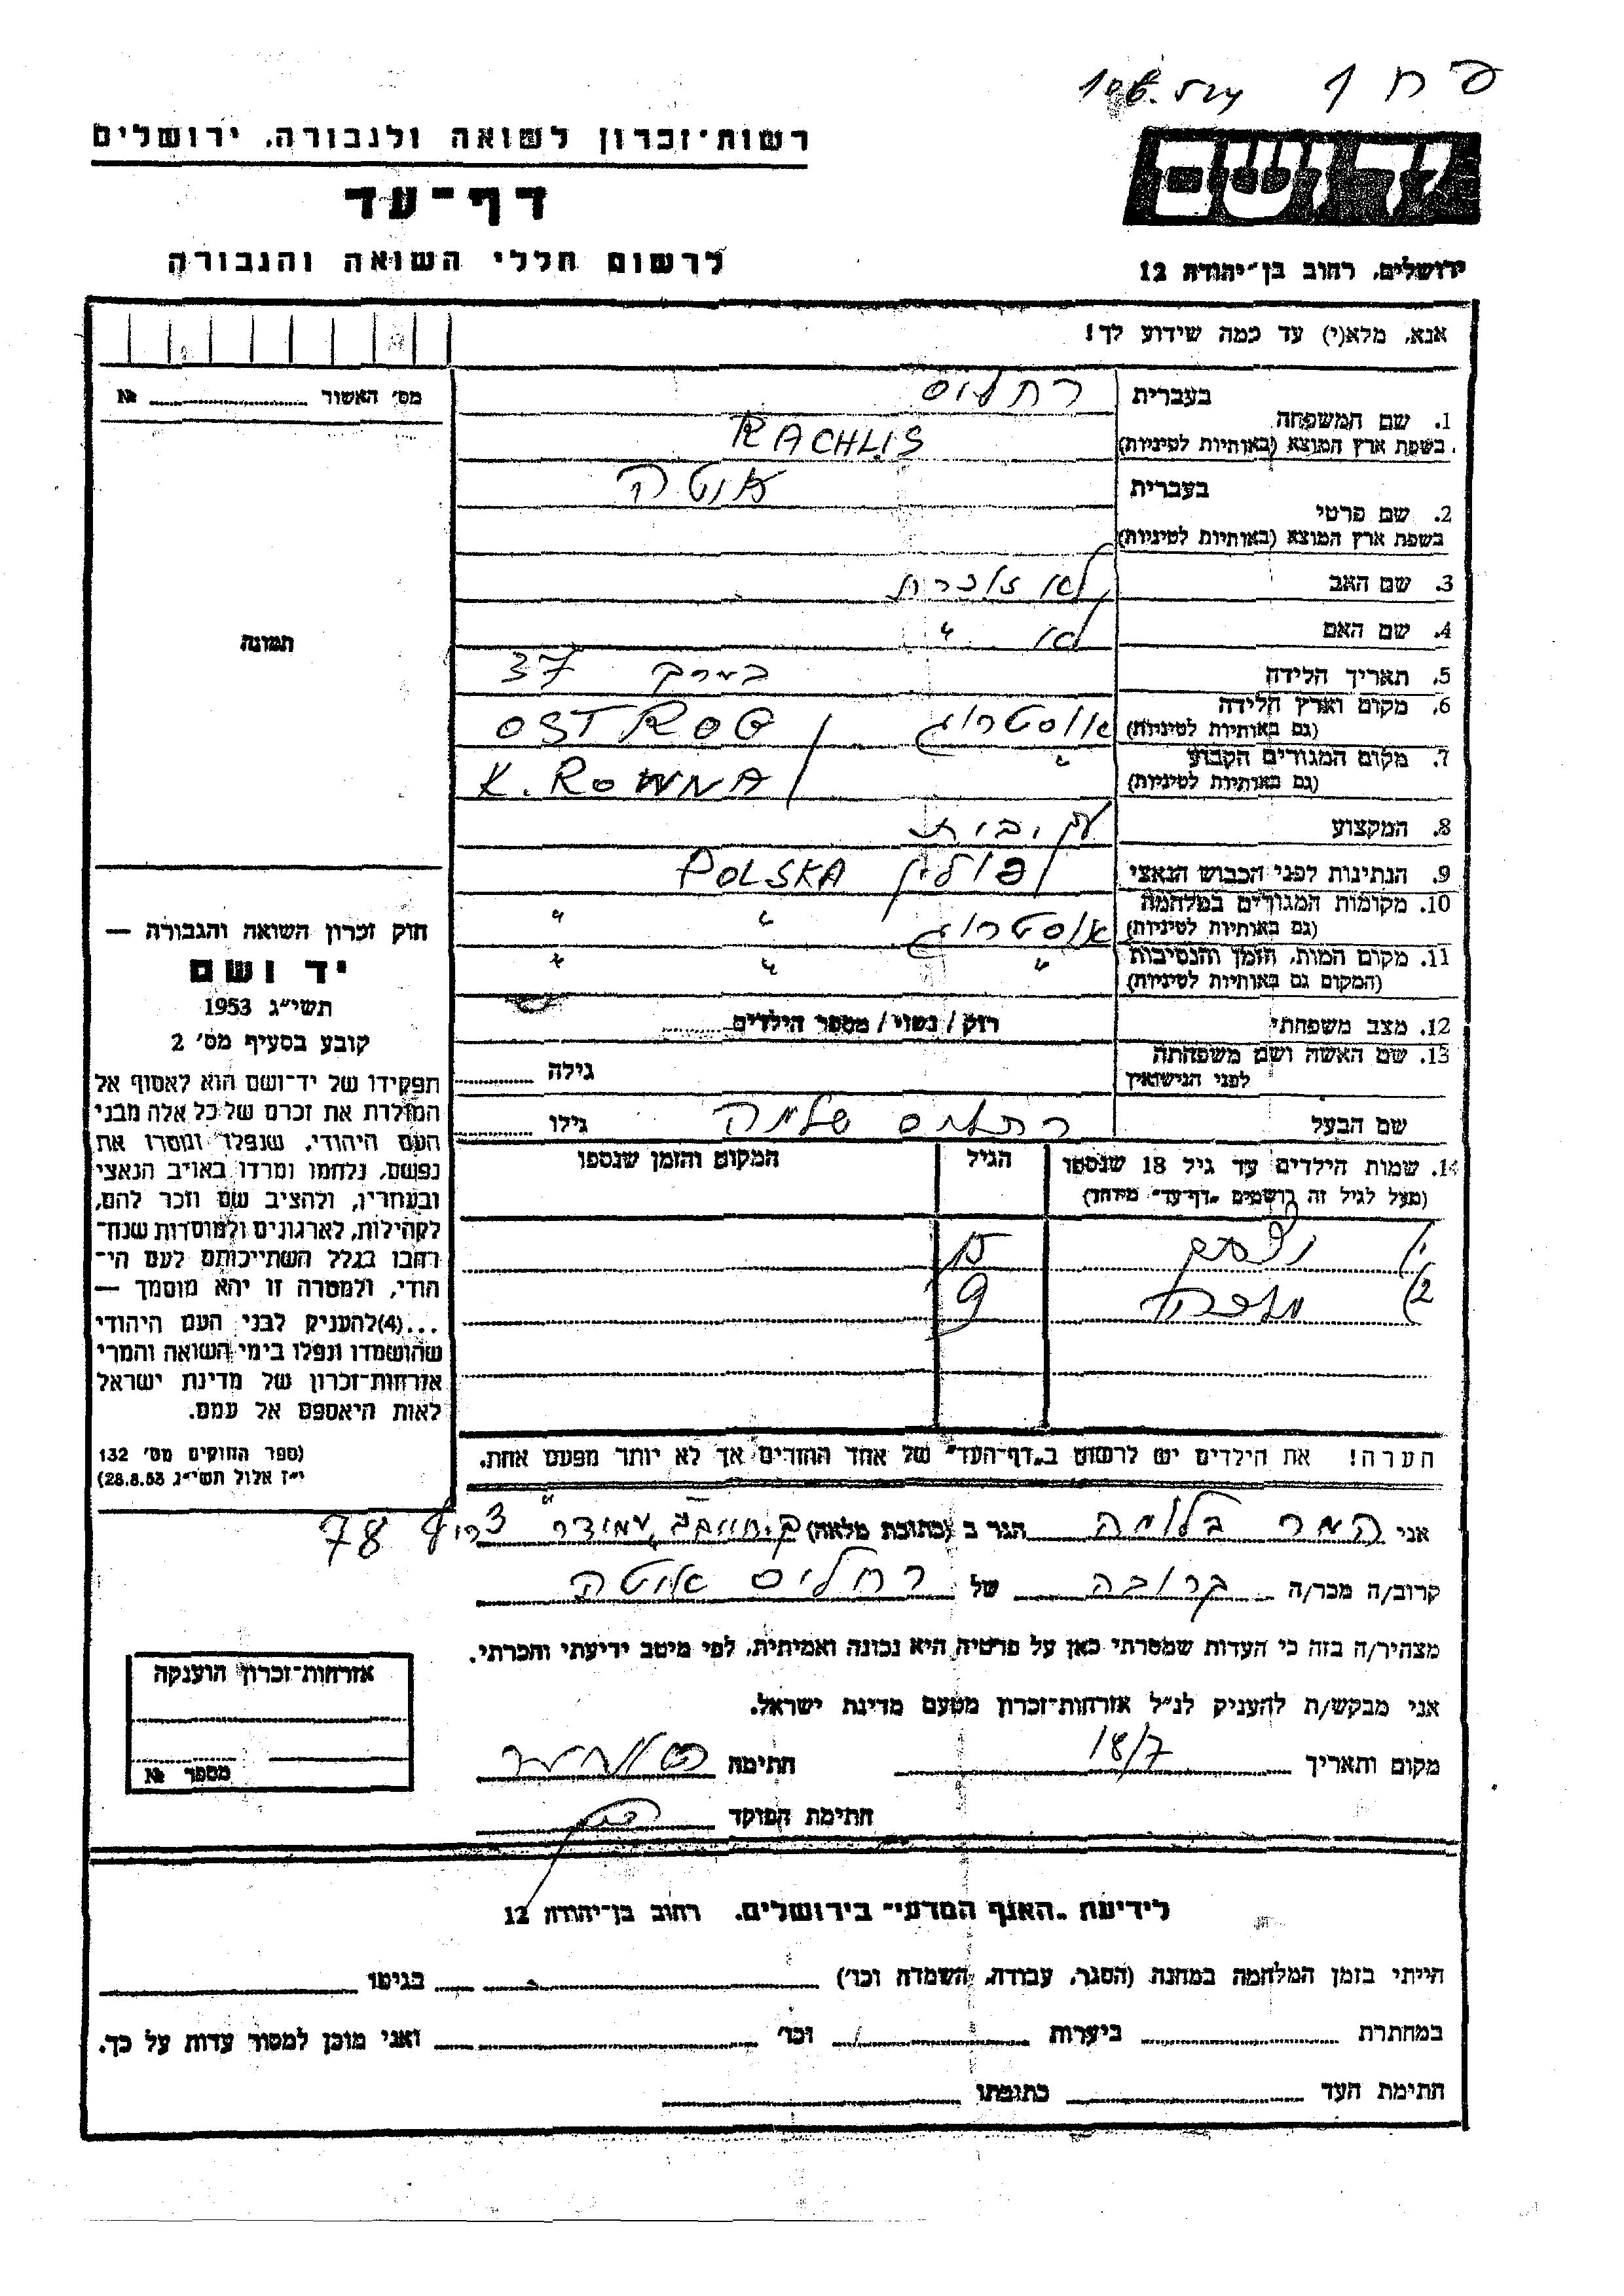 רשות־זכרון לשואה ולגבורה, ירושלים
דף־עד
לרשום חללי השואה והגבורה
ירושלים, רחוב בן־יהודה 12
אנא, מלא(י) עד כמה שידוע לך!
מס׳ האשור № 
תמונה
1. שם המשפחה בעברית רחליס
בשפת ארץ המוצא (באותיות לטיניות) RACHLIS
2. שם פרטי בעברית איטה
בשפת ארץ המוצא (באותיות לטיניות)
3. שם האב לא זוכרת
4. שם האם לא "
5. תאריך הלידה בערך 37
6. מקום וארץ הלידה (גם באותיות לטיניות) אוסטרוג OSTROG
7. מקום המגורים הקבוע (גם באותיות לטיניות) " K. ROWNA
8. המקצוע עק. בית
9. הנתינות לפני הכבוש הנאצי פולין POLSKA
10. מקומות המגורים במלחמה (גם באותיות לטיניות) אוסטרוג " "
11. מקום המות, הזמן והנסיבות (המקום גם באותיות לטיניות) " " "
12. מצב משפחתי רוק / נשוי / מספר הילדים
13. שם האשה ושם משפחתה לפני הנישואין גילה
שם הבעל רחליס שלמה גילו
14. שמות הילדים עד גיל 18 שנספו הגיל המקום והזמן שנספו
(מעל לגיל זה רושמים „דף־עד" מיוחד)
1) 15
2) 9
הערה! את הילדים יש לרשום ב„דף־העד" של אחד ההורים אך לא יותר מפעם אחת.
חוק זכרון השואה והגבורה —
יד ושם
תשי״ג 1953
קובע בסעיף מס׳ 2
תפקידו של יד־ושם הוא לאסוף אל
המולדת את זכרם של כל אלה מבני
העם היהודי, שנפלו ומסרו את
נפשם, נלחמו ומרדו באויב הנאצי
ובעוזריו, ולהציב שם וזכר להם,
לקהילות, לארגונים ולמוסדות שנח־
רבו בגלל השתייכותם לעם הי־
הודי, ולמטרה זו יהא מוסמך —
...(4)להעניק לבני העם היהודי
שהושמדו ונפלו בימי השואה והמרי
אזרחות־זכרון של מדינת ישראל
לאות היאספם אל עמם.
(ספר החוקים מס׳ 132
י״ז אלול תשי״ג 28.8.53)
אני המר בלומה הגר ב (כתובת מלאה) עמידר צריף 78
קרוב/ה מכר/ה קרובה של רחליס איטה
מצהיר/ה בזה כי העדות שמסרתי כאן על פרטיה היא נכונה ואמיתית, לפי מיטב ידיעתי והכרתי.
אני מבקש/ת להעניק לנ״ל אזרחות־זכרון מטעם מדינת ישראל.
מקום ותאריך 18/7 חתימה
חתימת הפוקד
אזרחות־זכרון הוענקה
מספר №
לידיעת „האגף המדעי" בירושלים, רחוב בן־יהודה 12
הייתי בזמן המלחמה במחנה (הסגר, עבודה, השמדה וכו׳) בגיטו
במחתרת ביערות וכו׳ ואני מוכן למסור עדות על כך.
חתימת העד כתובתו